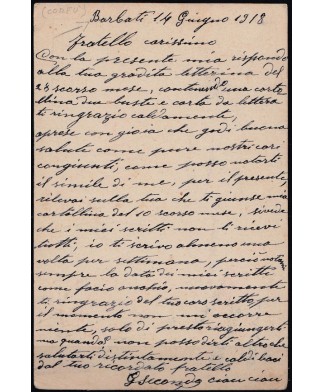 (CORFÙ)
Barbati 14 Giugno 1918
Fratello carissimo
Con la presente mia rispondo
alla tua gradita letterina del
28 scorso mese, contenente una carto
lina due buste e carta da lettera
ti ringrazio caldamente,
apresi con gioia che godi buona
salute come pure nostri cari
congiunti, come posso notarti
il simile di me, per il presente,
rilevai sulla tua che ti giunse mia
cartollina del 10 scorso mese, sicché
che i miei scritti non li ricevi
tutti, io ti scrivo almeno una
volta per settimana, perciò
sempre la data dei miei scritti
come facio anch'io, nuovamente
ti ringrazio del tuo caro scritto, per
il momento non mi occorre
niente, solo di presto giungerti
ma quando? non posso dirti altro che
salutarti distintamente e caldi baci
dal tuo ricordato fratello
ciau ciau